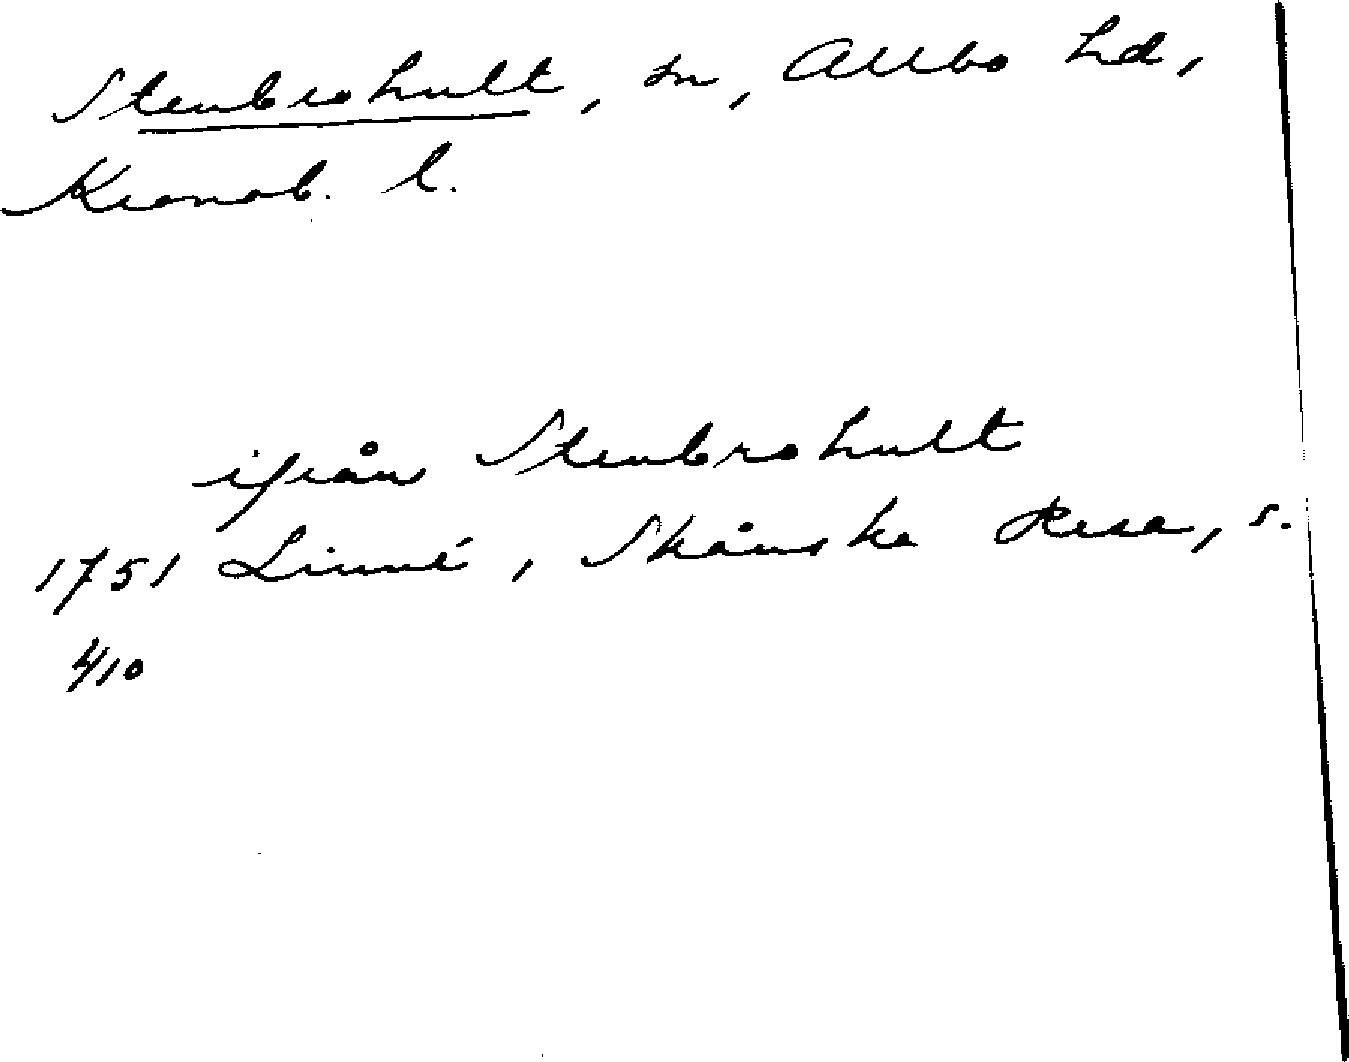 Stenbrohult, sn, Allbo hd,
Kronob. l.
ifrån Stenbrohult
1751 Linné, Skånska Resa, s.
410